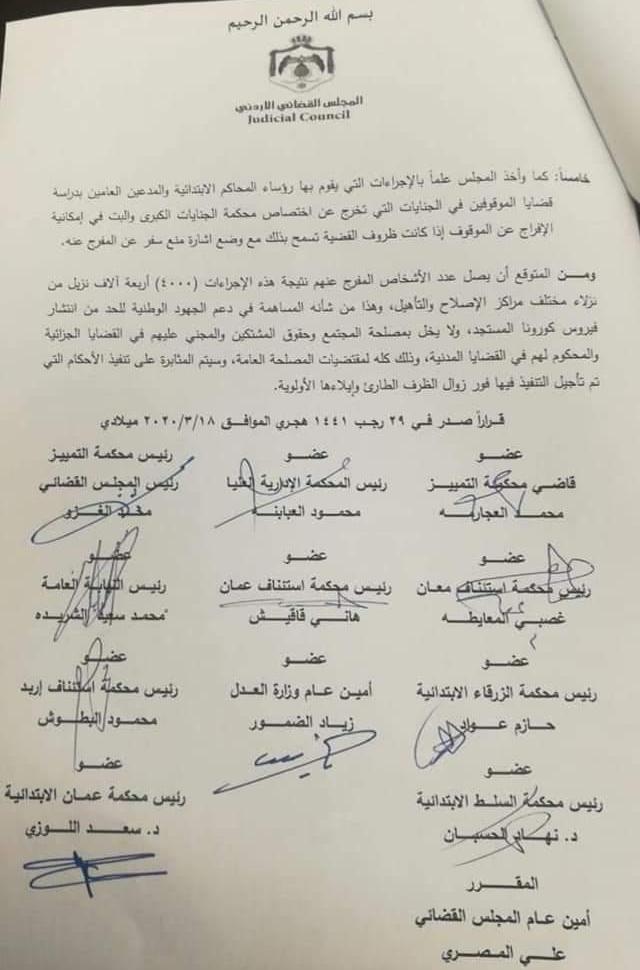 بسم الله الرحمن الرحيم
المجلس القضائي الأردني
Judicial Council
خامساً: كما وأخذ المجلس علماً بالإجراءات التي يقوم بها رؤساء المحاكم الابتدائية والمدعين العامين بدراسة
قضايا الموقوفين في الجنايات التي تخرج عن اختصاص محكمة الجنايات الكبرى والبت في إمكانية
الإفراج عن الموقوف إذا كانت ظروف القضية تسمح بذلك مع وضع اشارة منع سفر عن المفرج عنه.
ومن المتوقع أن يصل عدد الأشخاص المفرج عنهم نتيجة هذه الإجراءات (٤٠٠٠) أربعة آلاف نزيل من
نزلاء مختلف مراكز الإصلاح والتأهيل، وهذا من شأنه المساهمة في دعم الجهود الوطنية للحد من انتشار
فيروس كورونا المستجد، ولا يخل بمصلحة المجتمع وحقوق المشتكين والمجني عليهم في القضايا الجزائية
والمحكوم لهم في القضايا المدنية، وذلك كله لمقتضيات المصلحة العامة، وسيتم المثابرة على تنفيذ الأحكام التي
تم تأجيل التنفيذ فيها فور زوال الظرف الطارئ وإيلاءها الأولوية.
قراراً صدر في ٢٩ رجب ١٤٤١ هجري الموافق ٢٠٢٠/٣/١٨ ميلادي
عضو عضو رئيس محكمة التمييز
قاضي محكمة التمييز رئيس المحكمة الإدارية العليا رئيس المجلس القضائي
محمد العجارمه محمود العبابنه محمد الغزو
عضو عضو عضو
رئيس محكمة استئناف معان رئيس محكمة استئناف عمان رئيس النيابة العامة
غصبي المعايطه هاني قاقيش محمد سعيد الشريده
عضو عضو عضو
رئيس محكمة الزرقاء الابتدائية أمين عام وزارة العدل رئيس محكمة استئناف إربد
حازم عواد زياد الضمور محمود البطوش
عضو عضو
رئيس محكمة السلط الابتدائية رئيس محكمة عمان الابتدائية
د. نهار الحسبان د. سعد اللوزي
المقرر
أمين عام المجلس القضائي
علي المصري